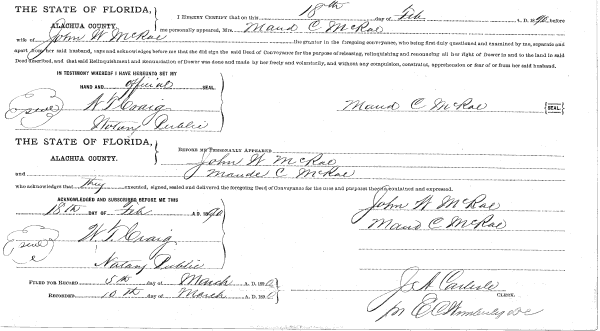 THE STATE OF FLORIDA,
ALACHUA COUNTY.
I HEREBY CERTIFY that on this 18th day of Feb A. D. 189 before
me personally appeared, Mrs. Maud C McRae
wife of John W McRae the grantor in the foregoing conveyance, who being first duly questioned and examined by me, separate and
apart from her said husband, says and acknowledges before me that she did sign the said Deed of Conveyance for the purpose of releasing, relinquishing and renouncing all her right of Dower in and to the land in said
Deed described, and that said Relinquishment and Renunciation of Dower was done and made by her freely and voluntarily, and without any compulsion, constraint, apprehension or fear of or from her said husband.
IN TESTIMONY WHEREOF I HAVE HEREUNTO SET MY
HAND AND official SEAL.
W. T. Craig
Notary Public
Maud C McRae {SEAL}
THE STATE OF FLORIDA,
ALACHUA COUNTY.
BEFORE ME PERSONALLY APPEARED
John W McRae
and Maude C McRae
who acknowledged that they executed, signed, sealed and delivered the foregoing Deed of Conveyance for the uses and purposes therein contained and expressed.
ACKNOWLEDGED AND SUBSCRIBED BEFORE ME THIS
18th DAY OF Feb A. D. 1890
W. T. Craig
Notary Public
John W McRae
Maud C McRae
FILED FOR RECORD 5th day of March A. D. 1890
RECORDED 10th day of March A. D. 1890
J. A. Carlisle
CLERK.